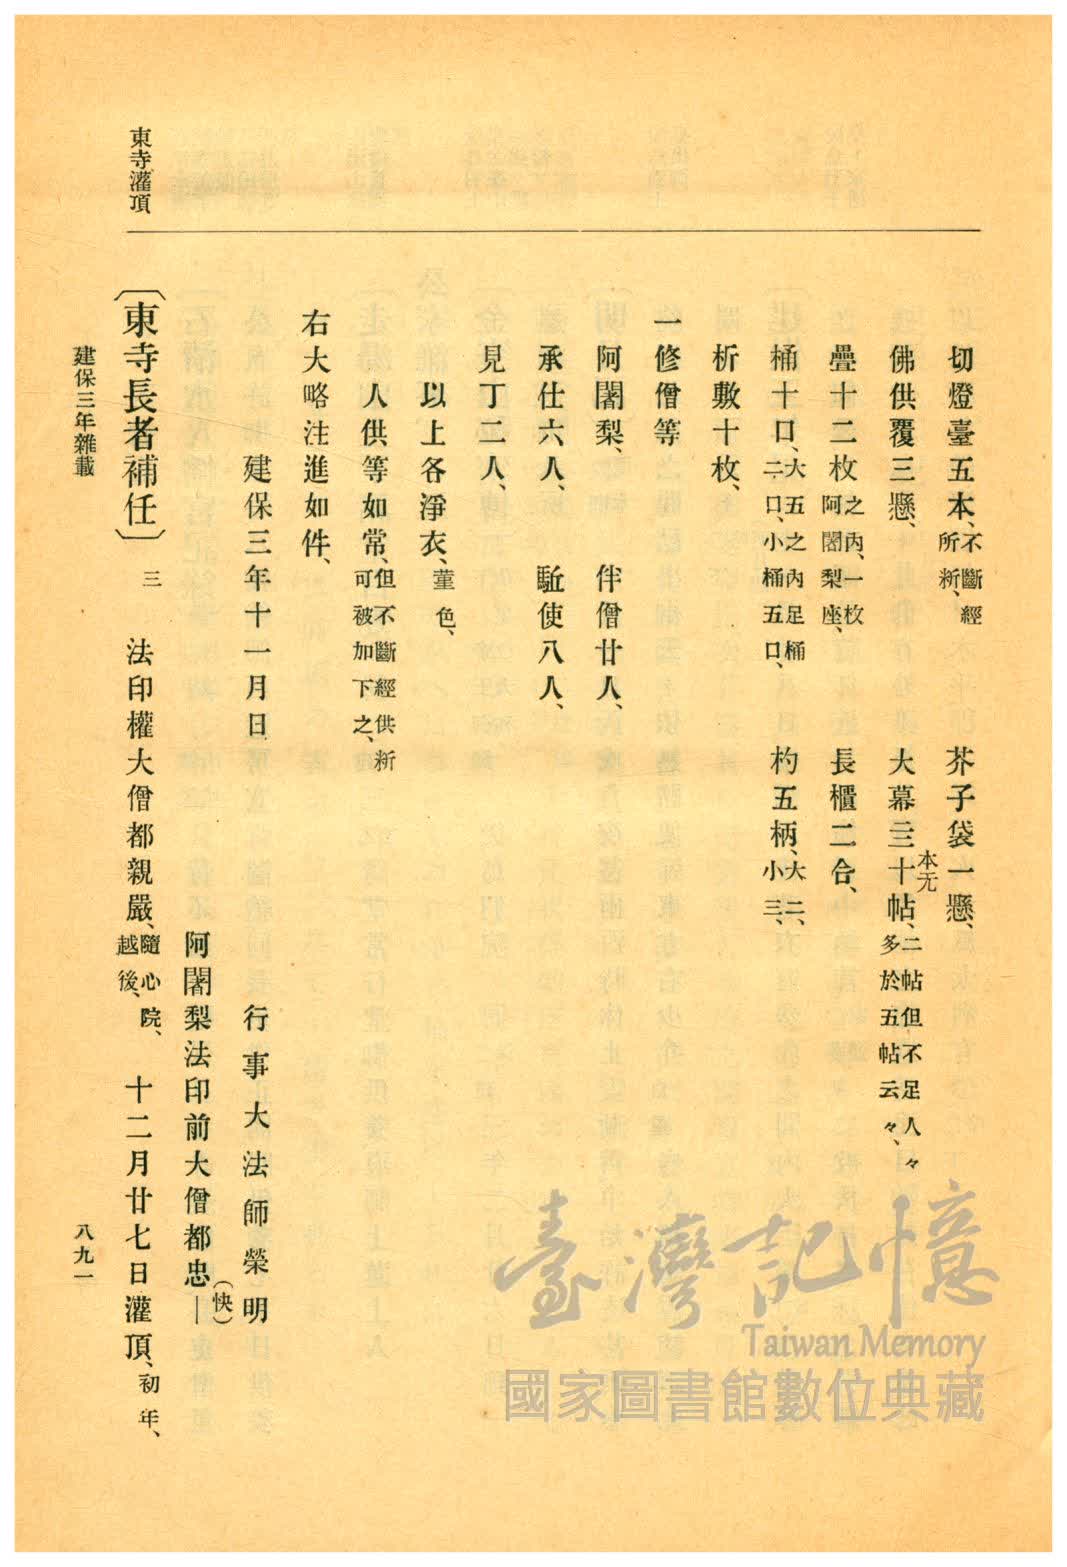 東寺灌頂
切燈臺五本、不斷經所㪽、 芥子袋一懸、
佛供覆三懸、 大幕三十帖、二帖但不足人々多於五帖云々、
本无
疊十二枚之內、一枚阿闍梨座、 長櫃二合、
桶十口、大五之內足桶二口、小桶五口、 杓五柄、大二、小三、
折敷十枚、
一修僧等
阿闍梨、 伴僧廿人、
承仕六人、 駈使八人、
見丁二人、
以上各淨衣、薑色、
人供等如常、但不斷經供㪽可被加下之、
右大略注進如件、
建保三年十一月日
行事大法師榮明
阿闍梨法印前大僧都忠—
(快)
〔東寺長者補任〕三 法印權大僧都親嚴、隨心院、越後、 十二月廿七日灌頂、初年、
建保三年雜載
八九一
臺灣記憶
Taiwan Memory
國家圖書館數位典藏